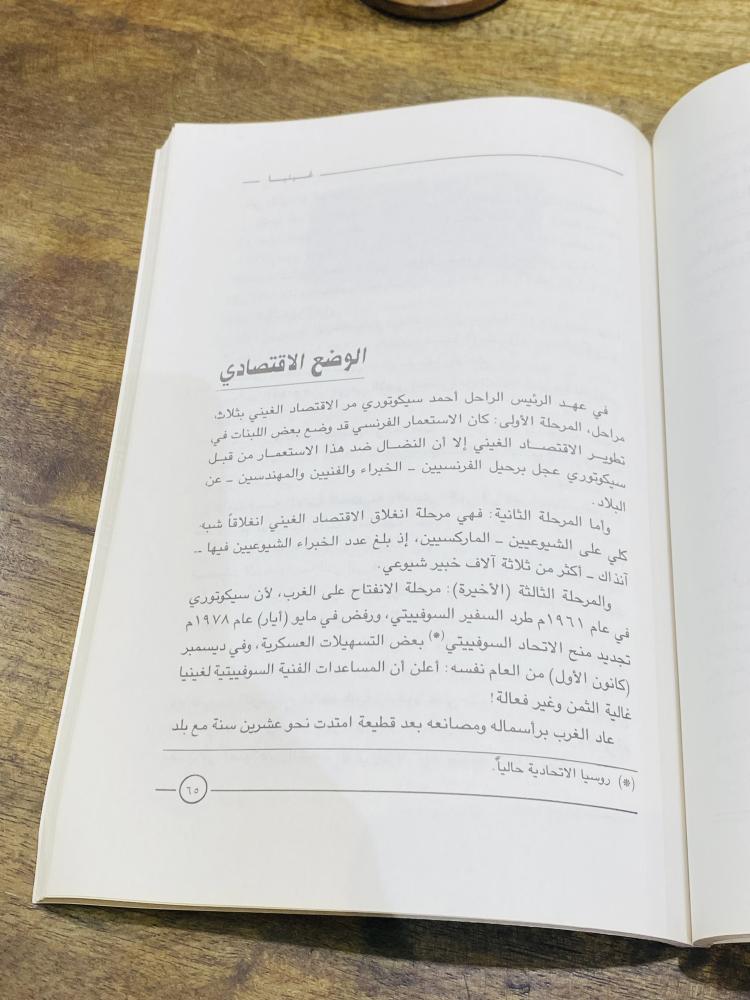 غينيا
الوضع الاقتصادي
في عهد الرئيس الراحل أحمد سيكوتوري مر الاقتصاد الغيني بثلاث
مراحل، المرحلة الأولى: كان الاستعمار الفرنسي قد وضع بعض اللبنات في
تطوير الاقتصاد الغيني إلا أن النضال ضد هذا الاستعمار من قبل
سيكوتوري عجل برحيل الفرنسيين - الخبراء والفنيين والمهندسين - عن
البلاد.
وأما المرحلة الثانية: فهي مرحلة انغلاق الاقتصاد الغيني انغلاقاً شبه
كلي على الشيوعيين - الماركسيين، إذ بلغ عدد الخبراء الشيوعيين فيها -
آنذاك - أكثر من ثلاثة آلاف خبير شيوعي.
والمرحلة الثالثة (الأخيرة): مرحلة الانفتاح على الغرب، لأن سيكوتوري
في عام ١٩٦١م طرد السفير السوفييتي، ورفض في مايو (أيار) عام ١٩٧٨م
تجديد منح الاتحاد السوفييتي(*) بعض التسهيلات العسكرية، وفي ديسمبر
(كانون الأول) من العام نفسه: أعلن أن المساعدات الفنية السوفييتية لغينيا
غالية الثمن وغير فعالة!
عاد الغرب برأسماله ومصانعه بعد قطيعة امتدت نحو عشرين سنة مع بلد
(*) روسيا الاتحادية حالياً.
٦٥